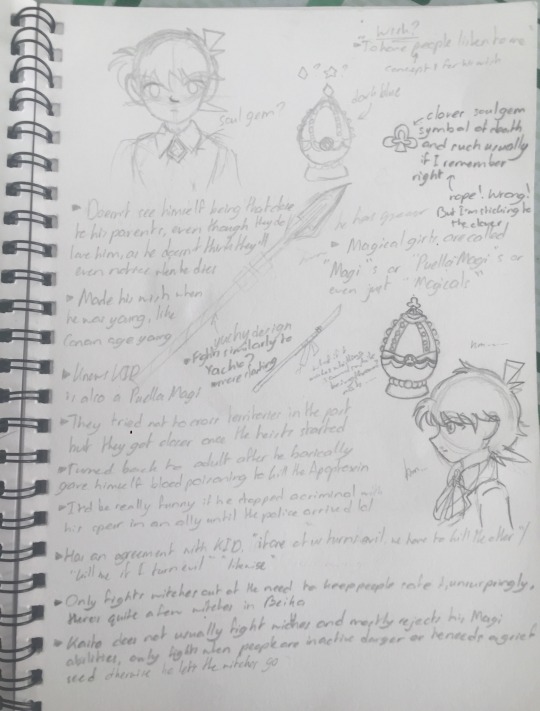 Wish?
"To have people listen to me
concept 1 for his wish
dark blue
soul gem?
clover soul gem
symbol of death
and such usually
if I remember
right
nope! Wrong!
But I'm sticking to
the clover
Doesn't see himself being that close
to his parents, even though they do
love him, as he doesn't think they'll
even notice when he dies
he has
Magical girls, are called
"Magi"s or "Puella Magi"s or
even just "Magicals"
Made his wish when
he was young, like
Conan age young
yachiy design
Fights similarly to
Yachi?
more floating
Knows KID
is also a Puella Magi
hm
They tried not to cross territories in the past
but they got closer once the heists started
Turned back to adult after he basically
gave himself blood poisoning to kill the Apotoxin
It'd be really funny if he trapped a criminal with
his spear in an ally until the police arrived lol
Has an agreement with KID. "if one of us turns evil, we have to kill the other"/
"kill me if I turn evil" "likewise"
Only fights witches out of the need to keep people safe &, unsurprisingly,
theres quite a few witches in Beika
Kaito does not usually fight witches and mostly rejects his Magi
abilities, only fights when people are in active danger or he needs a grief
seed otherwise he lets the witches go